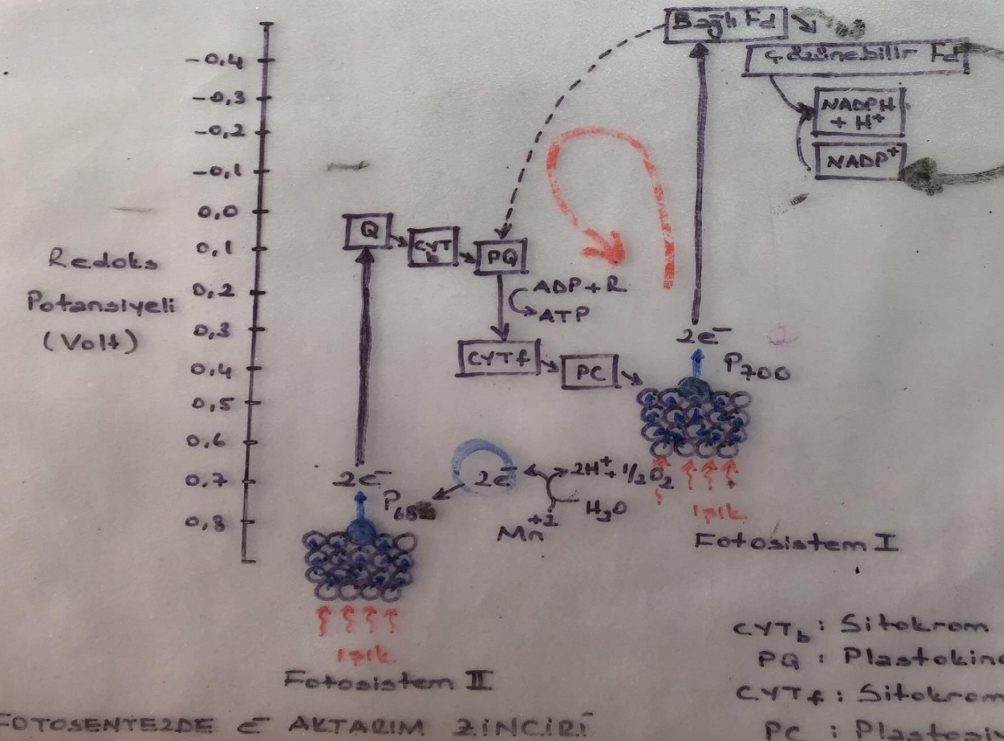 -0,4
-0,3
-0,2
-0,1
0,0
0,1
0,2
0,3
0,4
0,5
0,6
0,7
0,8
Redoks
Potansiyeli
(Volt)
Bağlı Fd
Çözünebilir Fd
NADPH
+ H⁺
NADP⁺
Q
CYT
b
PQ
ADP + R
ATP
CYTf
PC
2e⁻
P700
2e⁻
P68
2e⁻
2H⁺ + 1/2 O₂
H₂O
Mn⁺²
Işık
Fotosistem I
Işık
Fotosistem II
CYTb : Sitokrom
PQ : Plastokino
CYTf : Sitokrom
PC : Plastosiy
FOTOSENTEZDE e⁻ AKTARIM ZİNCİRİ